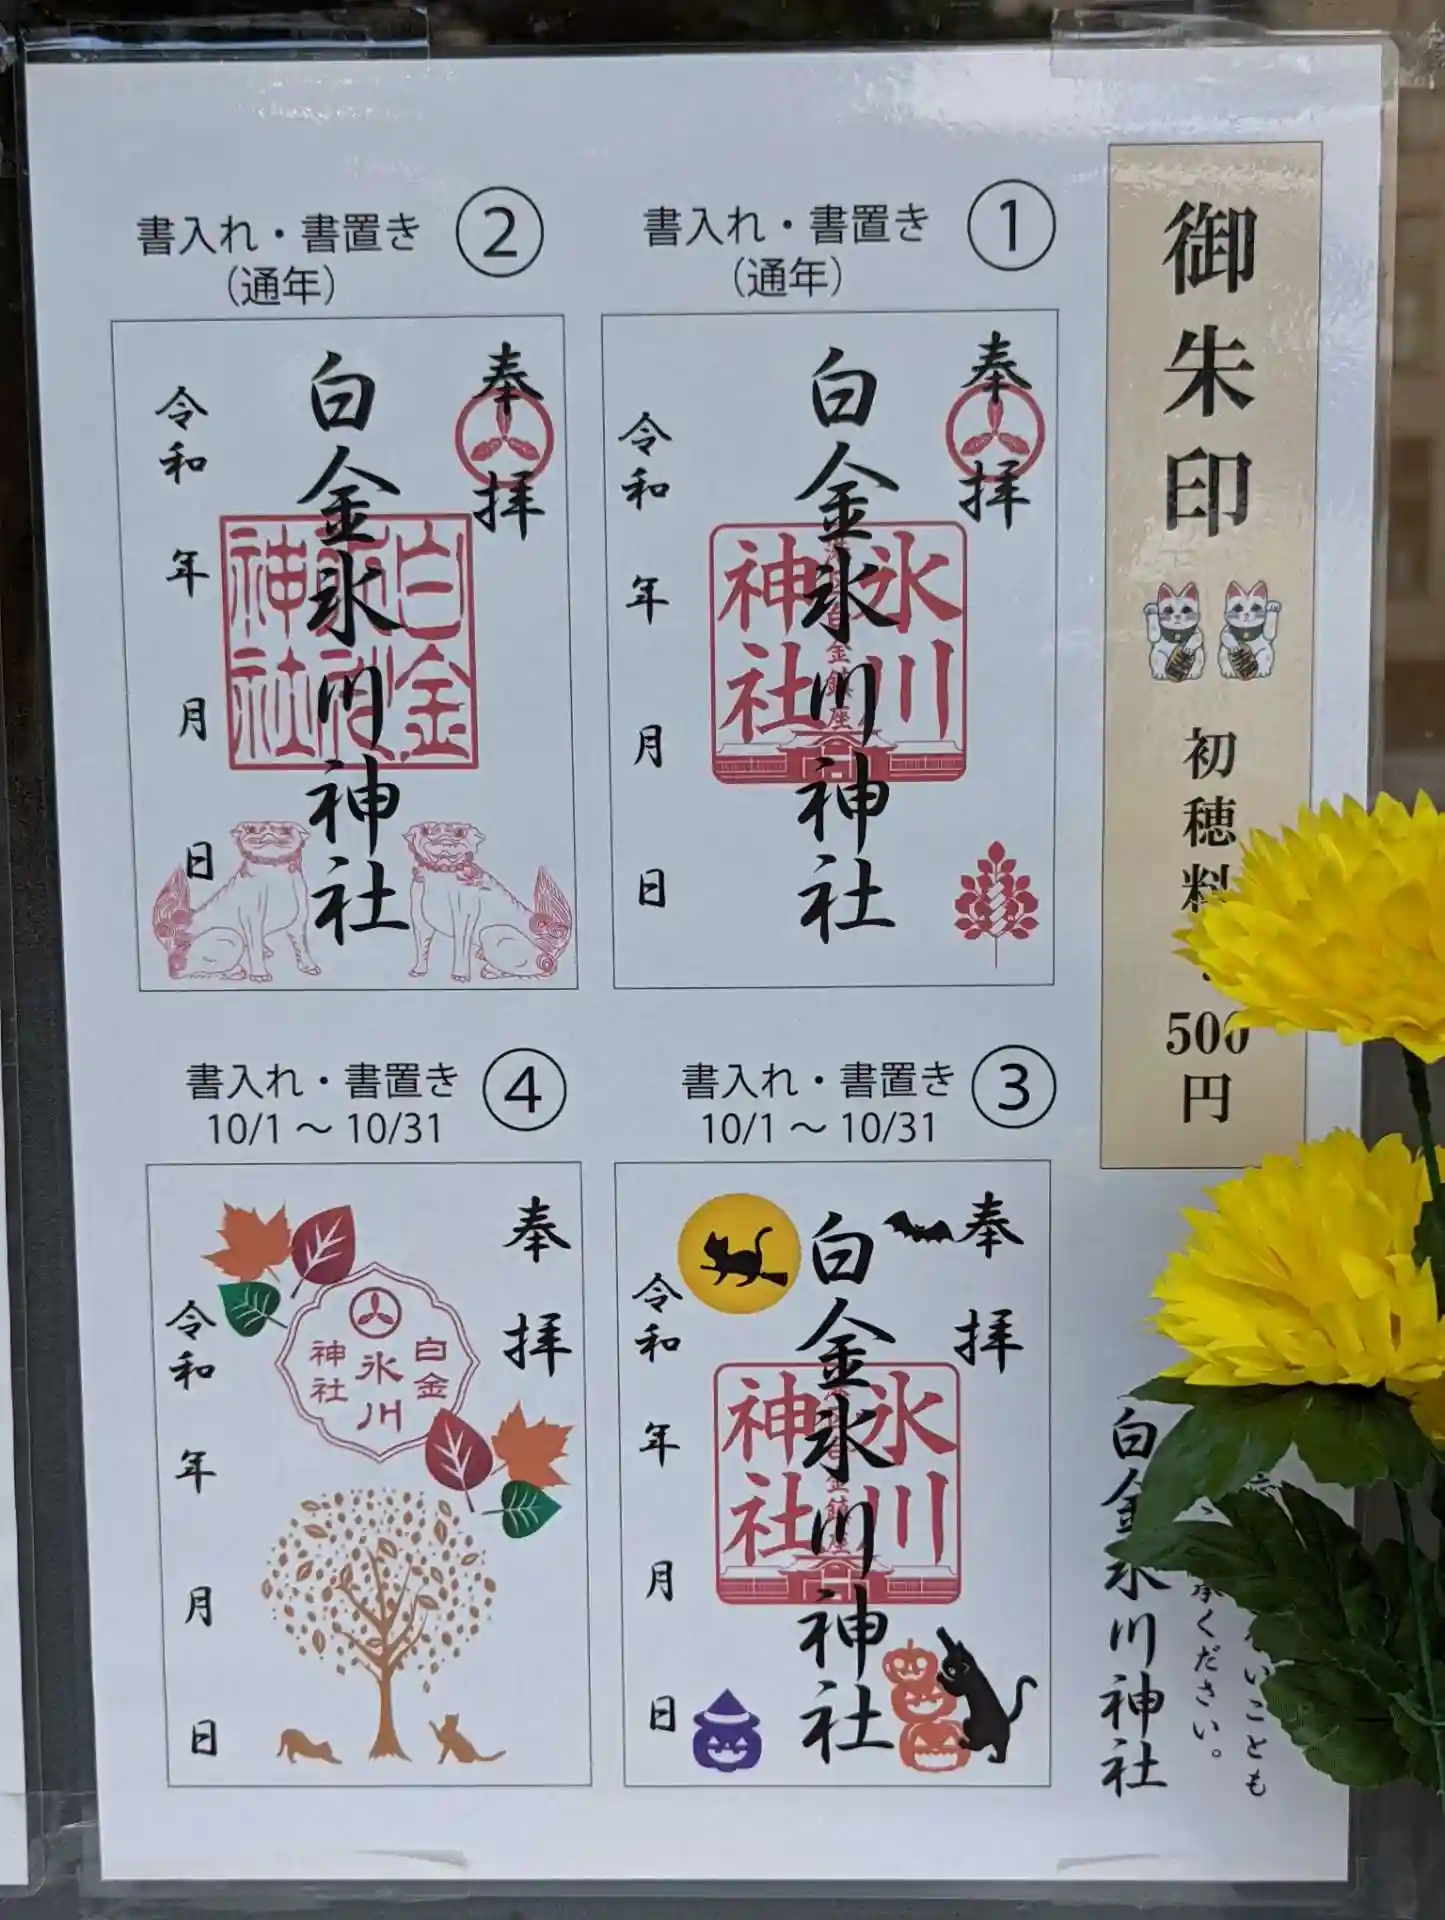 御朱印
初穂料
500
円
①
書入れ・書置き
(通年)
奉拝
白金氷川神社
氷川
神社
金鎮座
令和
年
月
日
②
書入れ・書置き
(通年)
奉拝
白金氷川神社
白金
神社
令和
年
月
日
③
書入れ・書置き
10/1～10/31
奉拝
白金氷川神社
氷川
神社
令和
年
月
日
④
書入れ・書置き
10/1～10/31
奉拝
白金
氷川
神社
令和
年
月
日
いことも
ください。
白金氷川神社